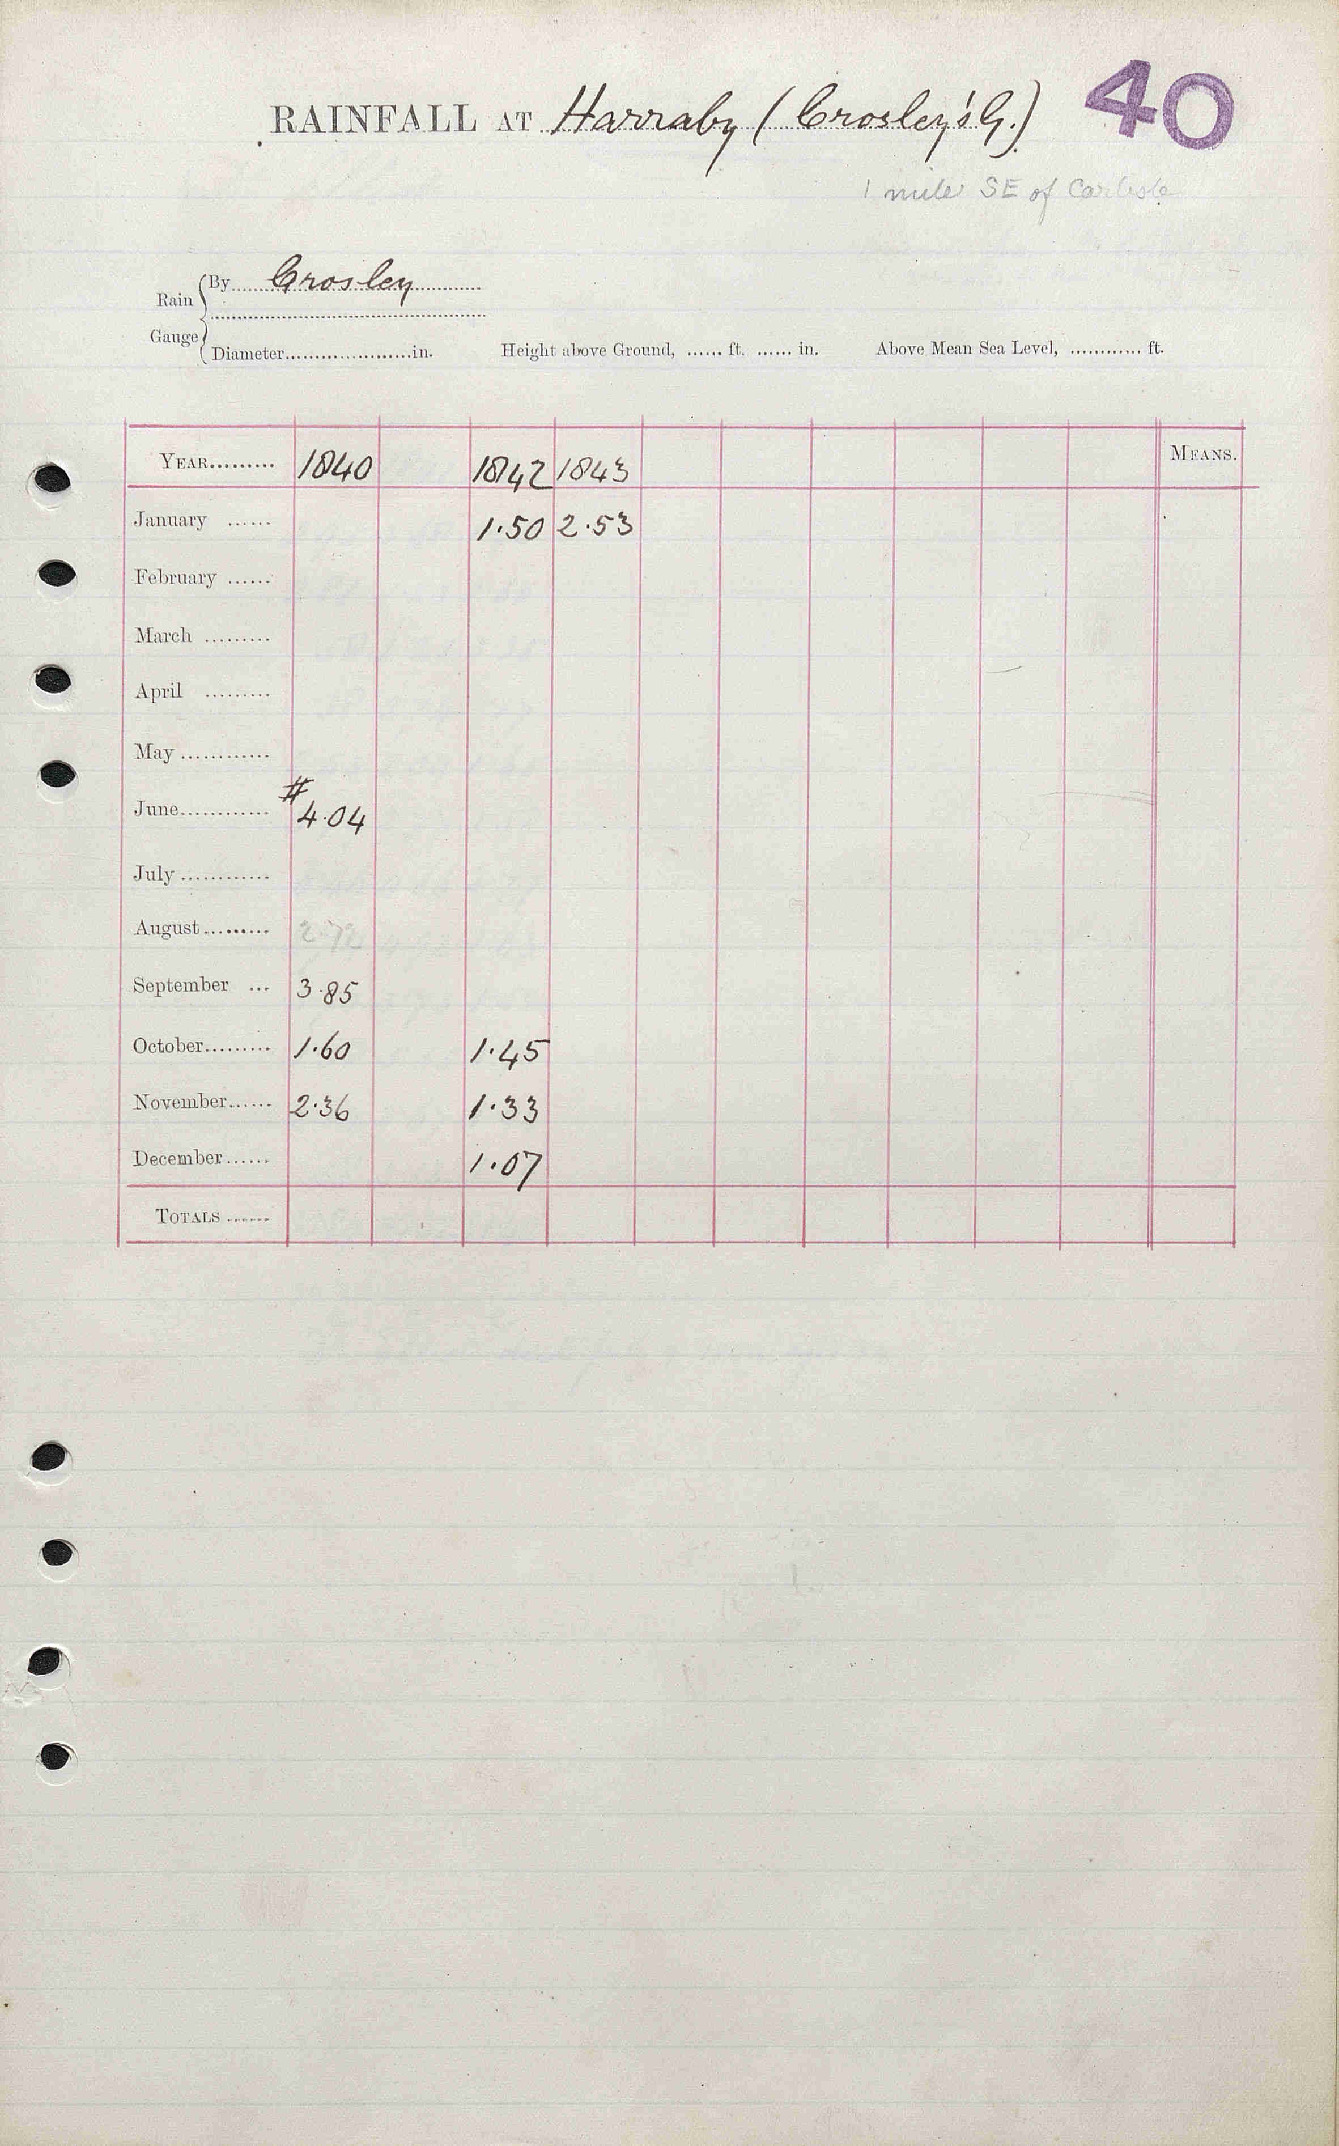 RAINFALL AT Harraby (Crosley's G.) 40
1 mile SE of Carlisle
Rain Gauge { By Crosley
Diameter.....................in. Height above Ground, ...... ft. ...... in. Above Mean Sea Level, ............ ft.
YEAR......... 1840 1842 1843 MEANS.
January ...... 1.50 2.53
February ......
March .........
April .........
May............
June............ # 4.04
July............
August......... 2.72
September ... 3.85
October......... 1.60 1.45
November...... 2.36 1.33
December...... 1.07
TOTALS ......